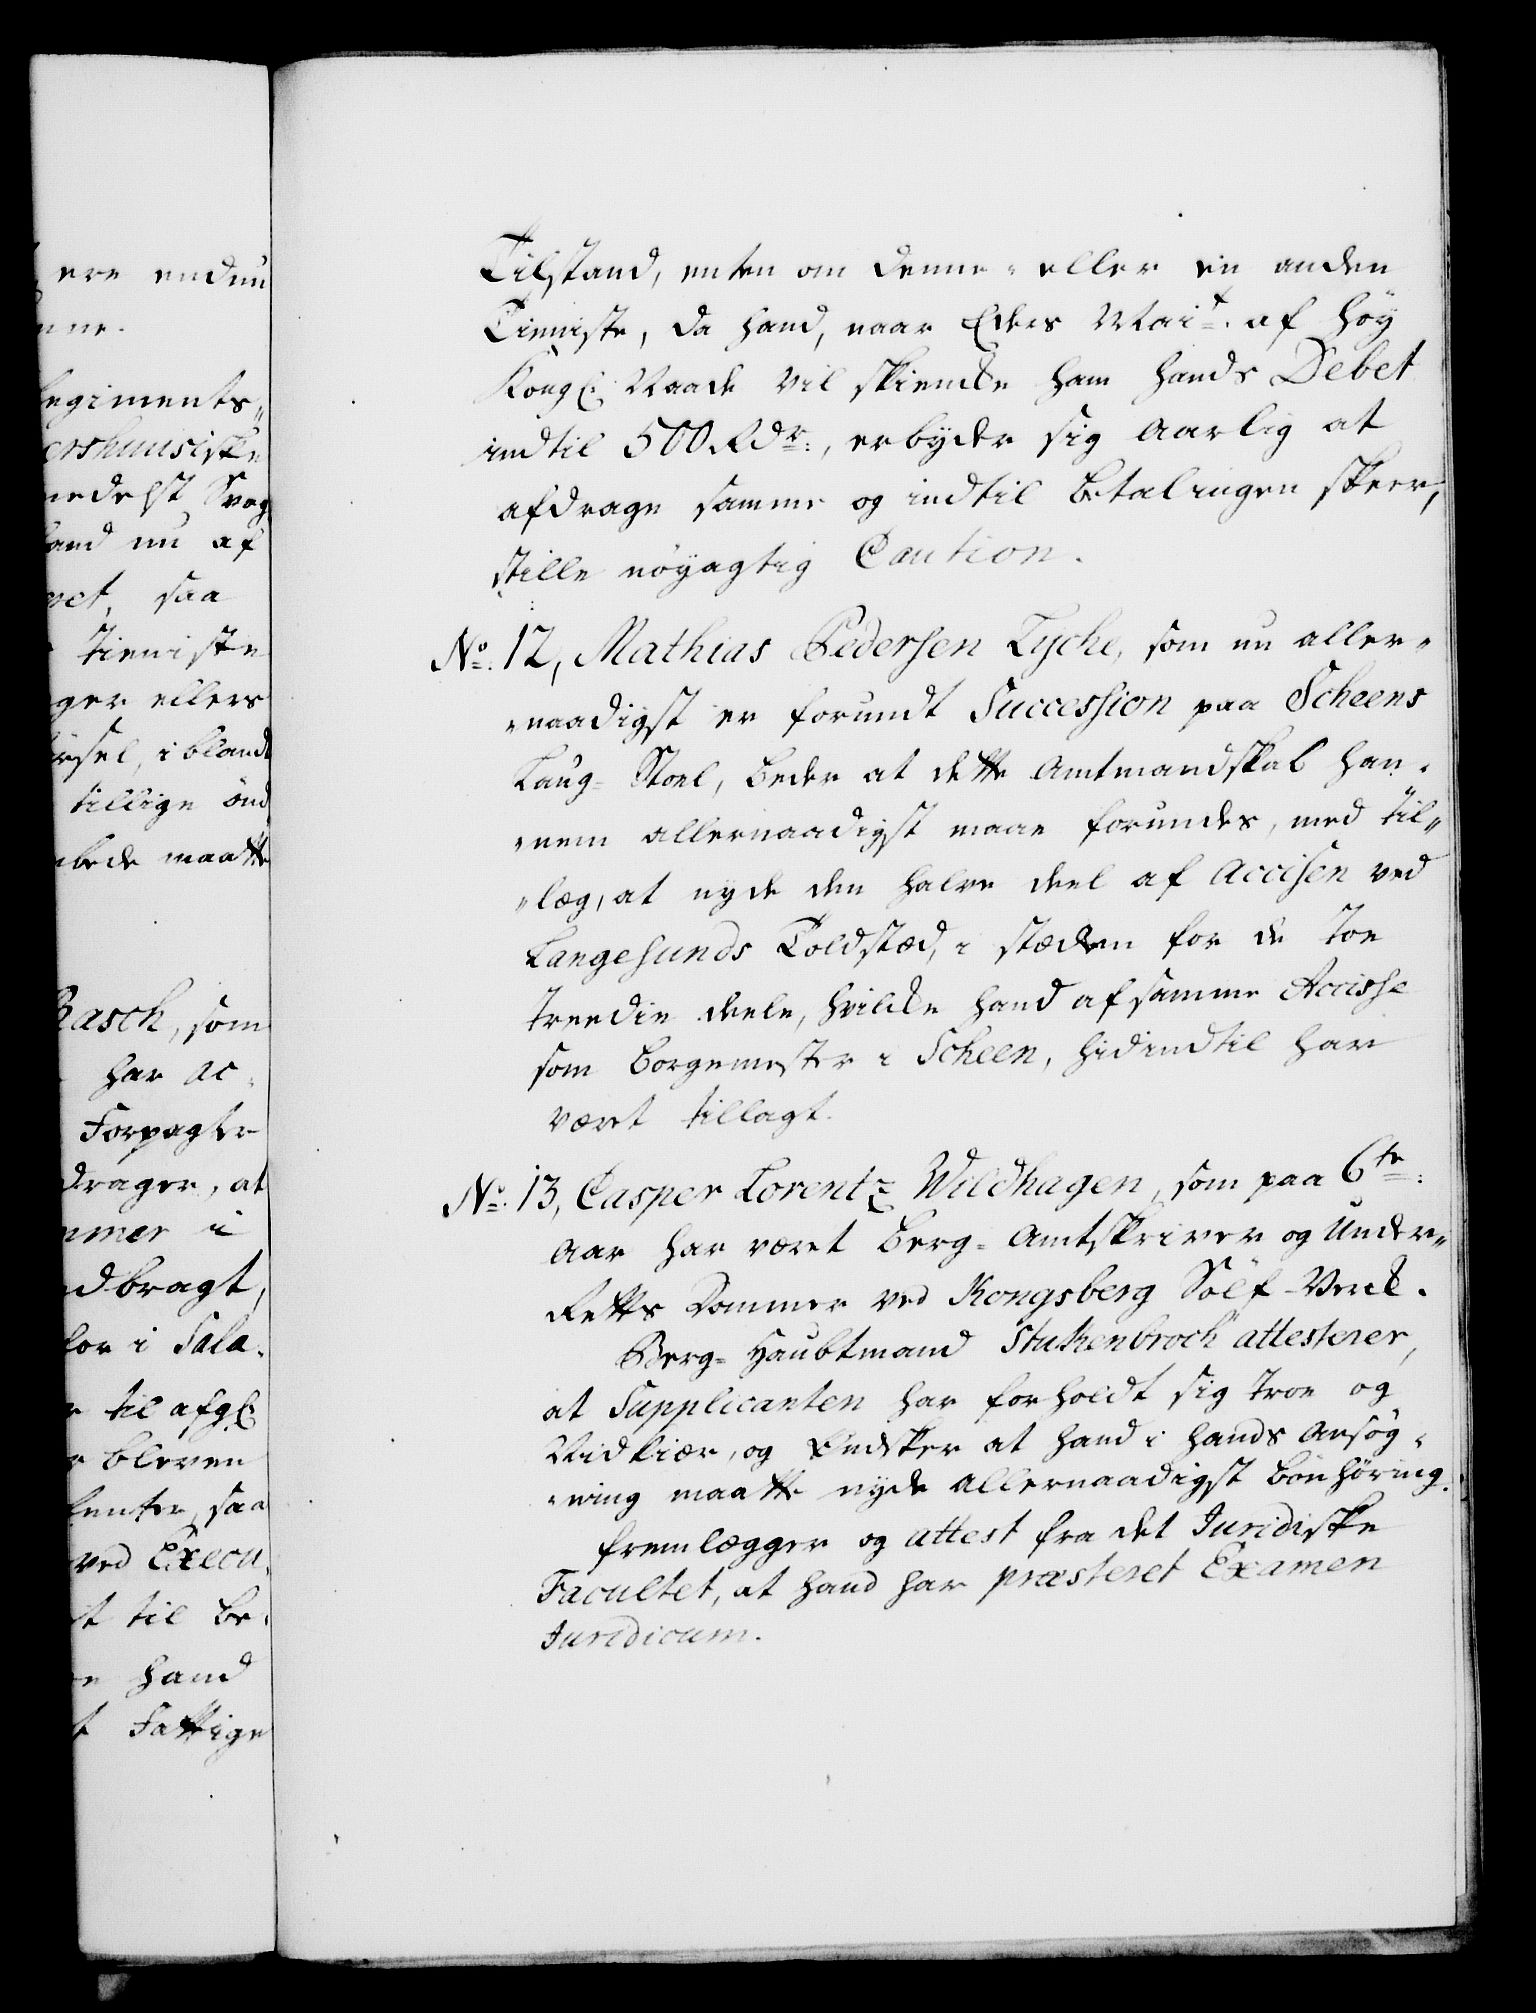 ere endnu
nne.
egiments„
ershuusiske
medelst Svag
hand nu af
vet, saa
tieniste
ger ellers
rsel, iblandt
tillige ønd
bede maatte
Rasch, som
har ac„
Forpagter
drager, at
mmer i
dbragt,
lor i Sala„
til afgl:
bleven
lenter, saa
ved Execu„
t til be„
hand
t Fattige
Tilstand, enten om denne- eller en anden
Tieniste, da hand, naar Eders Mait: af høy
Kongl: Naade vil skiencke ham hands Debet
indtil 500 Rdr:, erbyder sig Aarlig at
afdrage samme og indtil betalingen skeer,
stille nøyagtig Caution.
No: 12, Mathias Pedersen Tyche, som nu aller„
„naadigst er forundt Succession paa Scheens
Laug-Stoel, beder at dette Amtmandskab han„
„nem allernaadigst maae forundes, med til„
„læg, at nyde den halve deel af Accisen ved
Langesunds Toldstæd, i stæden for de toe
treedie deele, hvilcke hand af samme Accisse
som borgemester i Scheen, hidindtil har
været tillagt.
No: 13, Casper Lorentz Wildhagen, som paa 6te:
Aar har været Berg-Amtskriver og Under„
Retts Dommer ved Kongsberg Sölf-Verck.
Berg-Haubtmand Stukenbroch attesterer,
at Supplicanten har forholdt sig troe og
Nidkiær, og Ønsker at hand i hands Ansøg„
„ning maatte nyde allernaadigst bönhöring.
fremlægger og attest fra det Juridiske
Facultet, at hand har præsteret Examen
Juridicum.